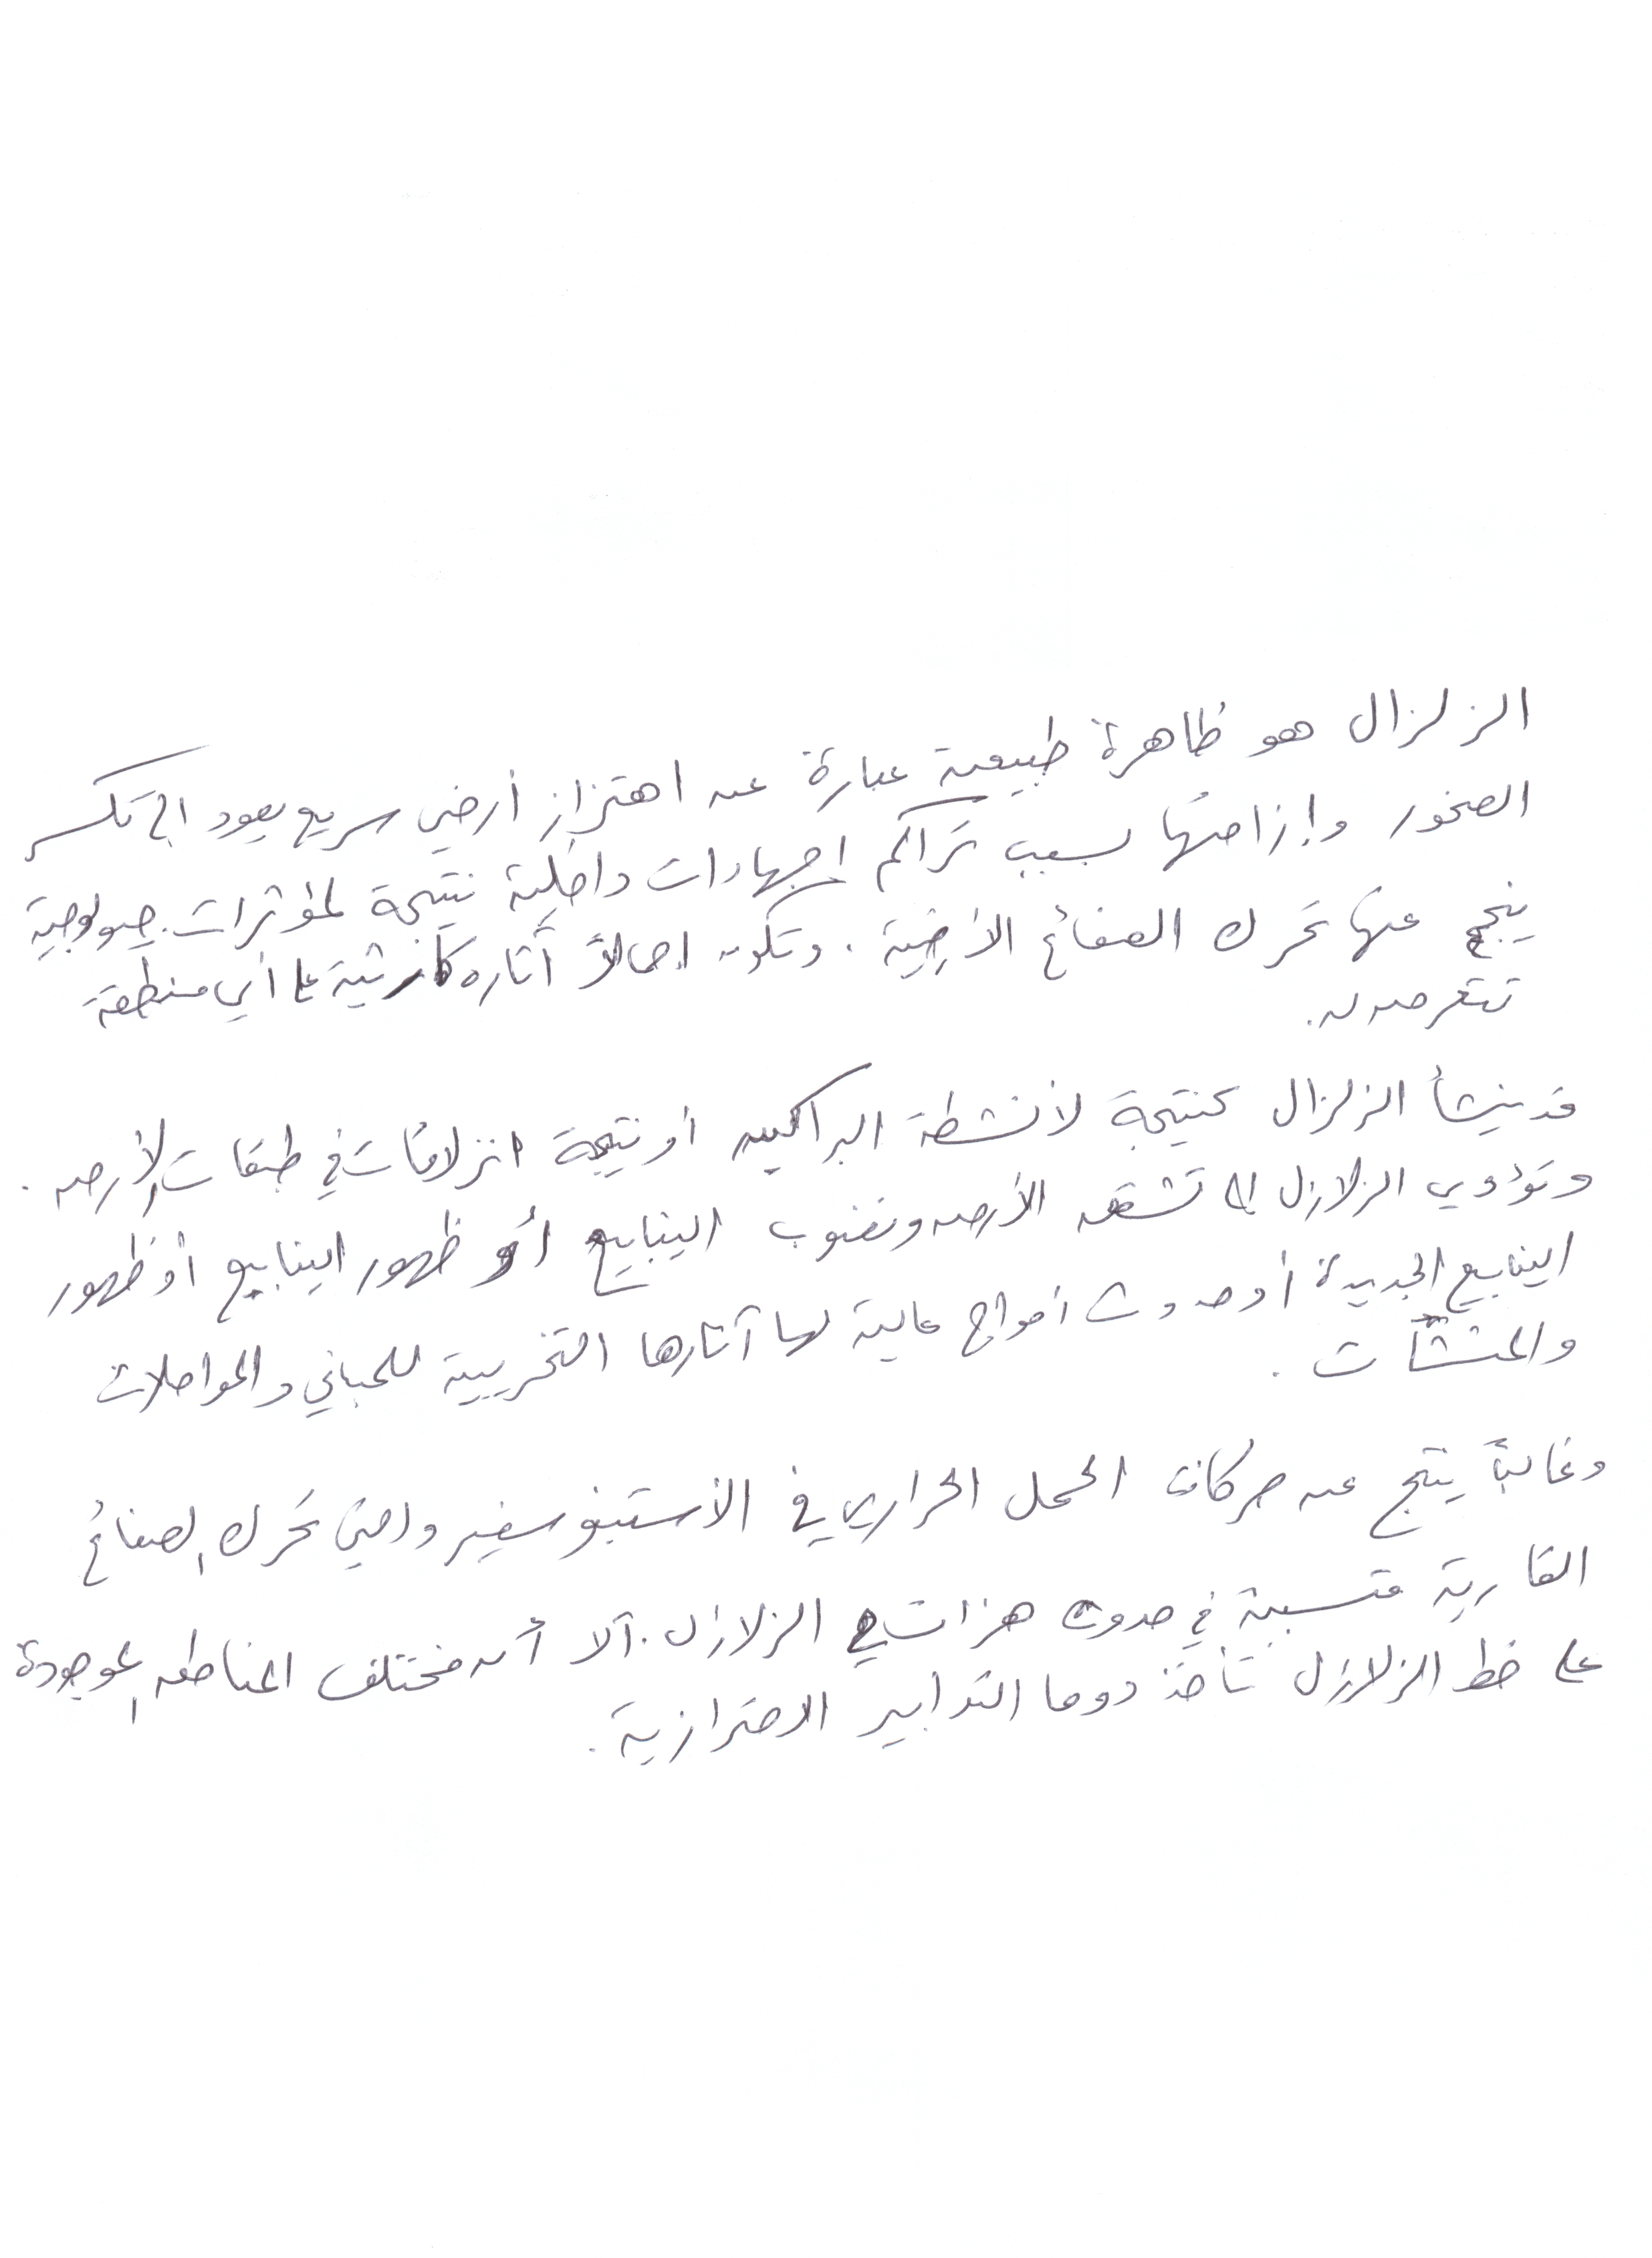 الزلزال هو ظاهرة طبيعية عبارة عن اهتزاز أرضي سريع يعود الى تكسر
الصخور وإزاحتها بسبب تراكم إجهادات داخلية نتيجة لمؤثرات جيولوجية
ينجم عنها تحرك الصفائح الأرضية. وتكون إجمالاً آثاره كارثية على أي منطقة
تتعرض له.
قد ينشأ الزلزال كنتيجة لأنشطة البراكين أو نتيجة انزلاقات في طبقات الأرض.
وتؤدي الزلازل إلى تشقق الأرض ونضوب الينابيع أو ظهور الينابيع أو ظهور
الينابيع الجديدة أو حدوث أمواج عالية لها آثارها التخريبية للمباني والمواصلات
والمنشآت.
وغالباً ينتج عن حركات الحمل الحراري في الأستينوسفير والتي تحرك الصفائح
القارية متسببة في حدوث هزات هي الزلازل. آلا أن مختلف المناطق الموجودة
على خط الزلازل تأخذ دوما التدابير الاحترازية.